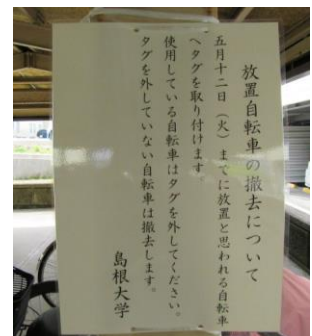 放置自転車の撤去について
五月十二日（火）までに放置と思われる自転車
へタグを取り付けます。
使用している自転車はタグを外してください。
タグを外していない自転車は撤去します。
島根大学